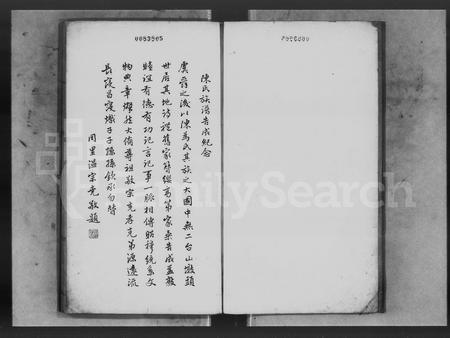 0083905
陳氏族譜告成紀念
虞舜之後以陳為氏其族之大國中無二台山嶺頭
世居其地詩禮舊家簪纓高第家乘告成蓋敦
睦誼有德有功記言記事一脈相傳昭穆統系文
物典章燦然大備尊祖敬宗克孝克弟源遠流
長寖昌寖熾子子孫孫欽承勿替
同里溫宗堯敬題
FamilySearch